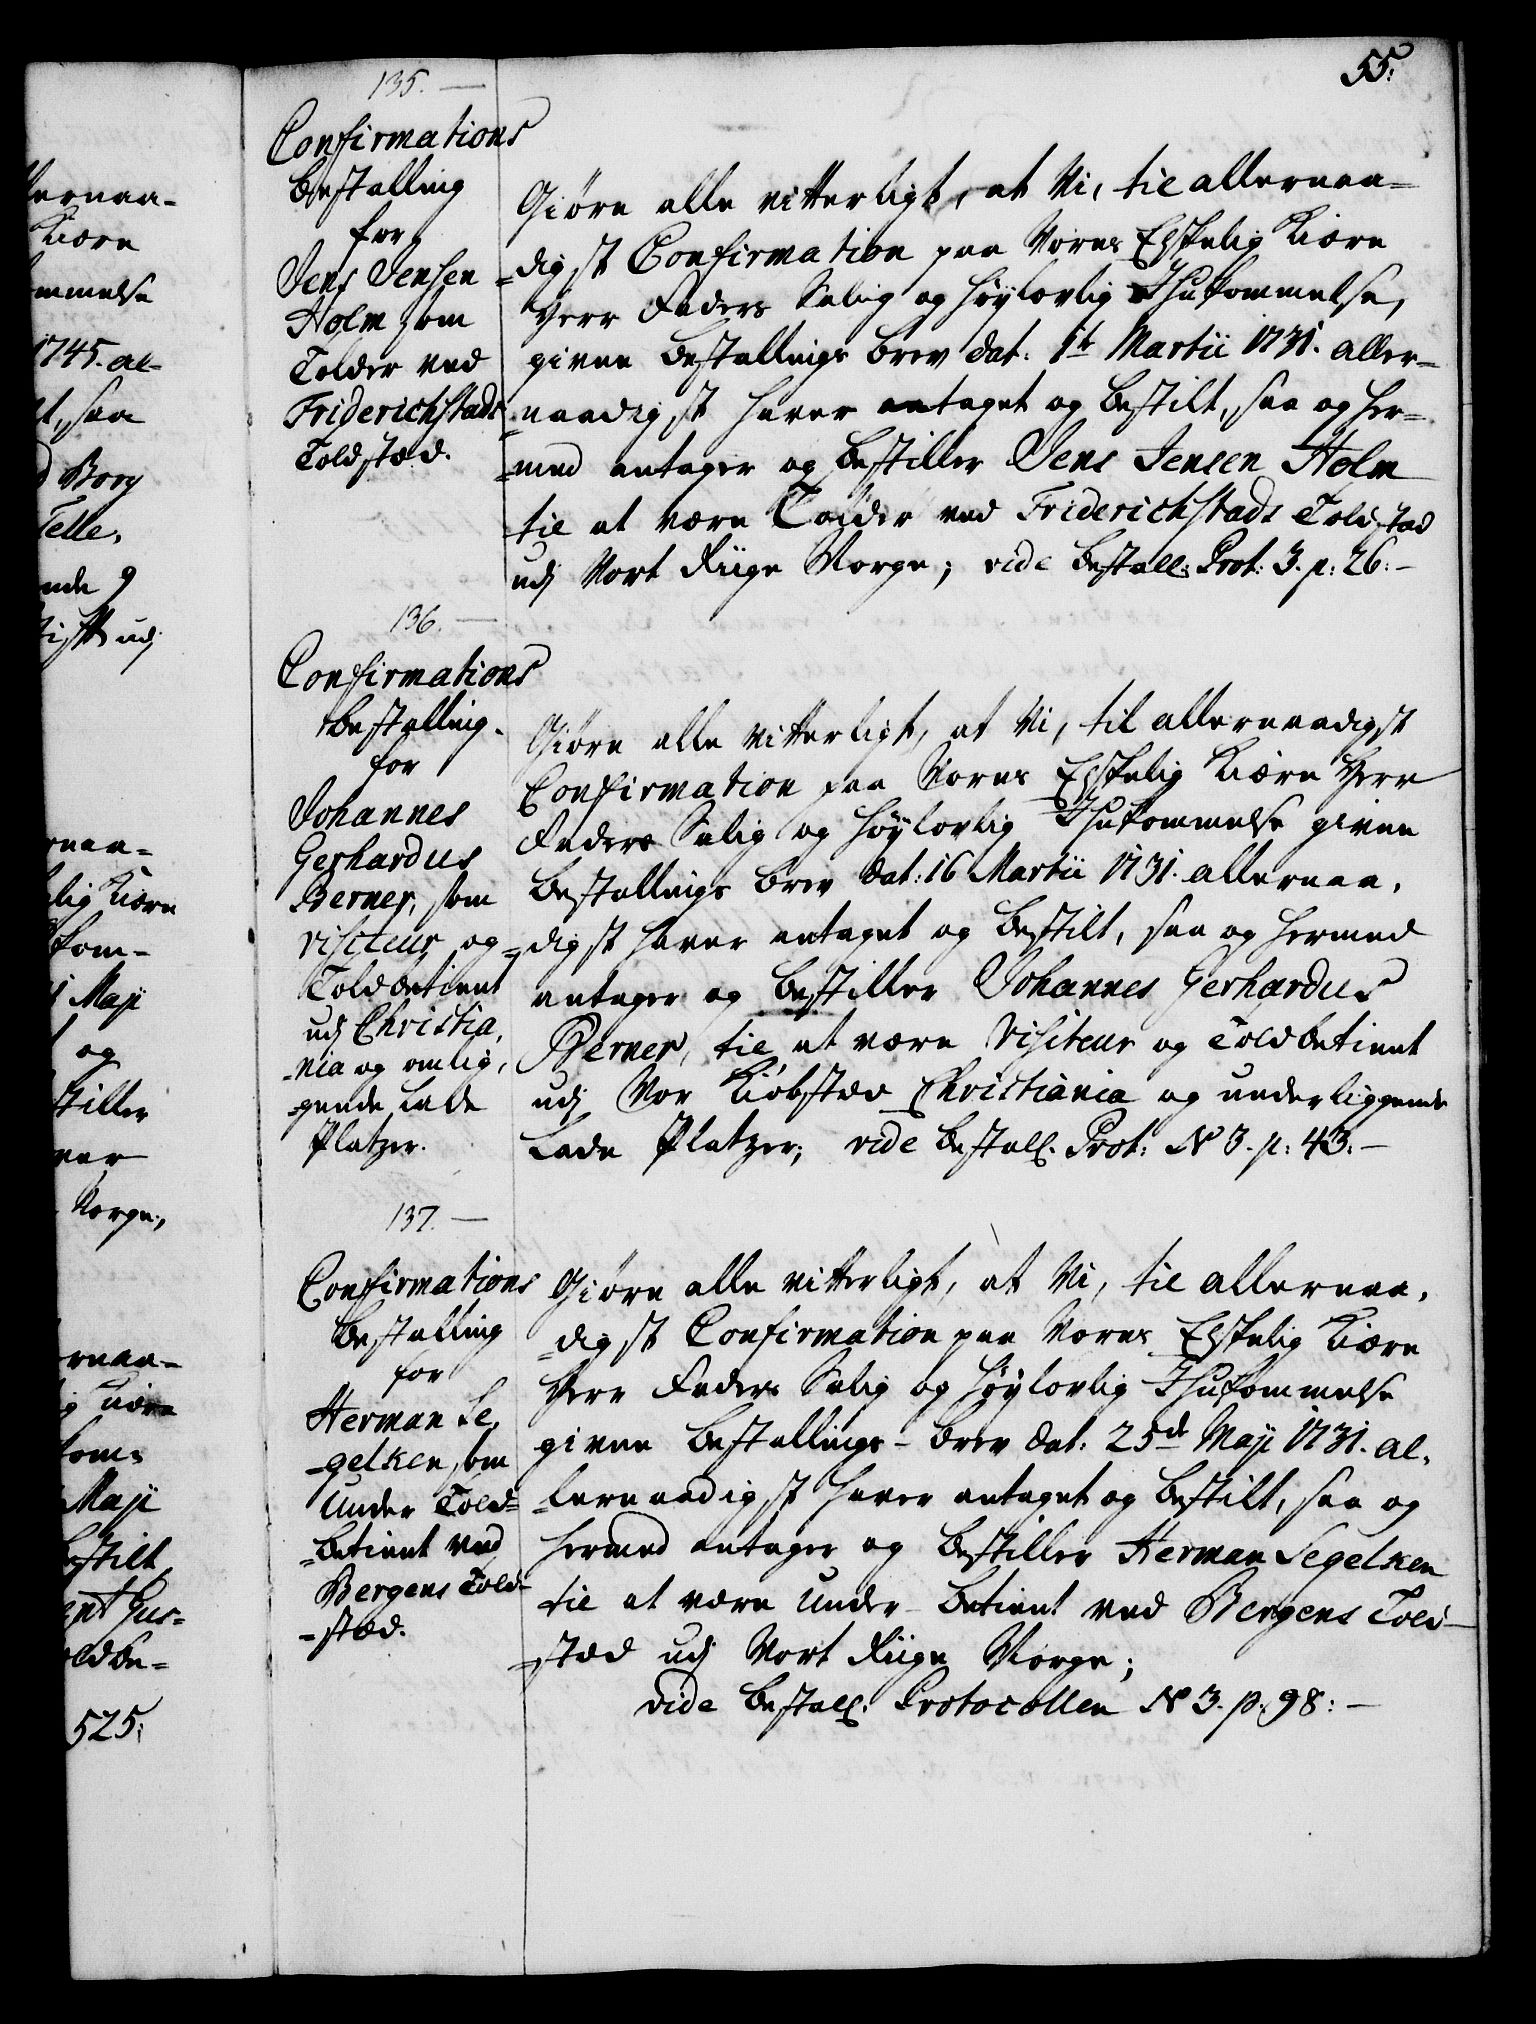 55.
135.
Confirmations
Bestalling
for
Jens Jensen
Holm som
Tolder ved
Friderichstads
Toldstæd.
Giøre alle vitterligt, at Vi, til allernaa-
digst Confirmation paa Vores Elskelig Kiære
Herr Faders Salig og Høylovlig Ihukommelse,
givne Bestallings Brev dat: 1te Martii 1731. aller-
naadigst haver antaget og bestilt, saa og her-
med antager og bestiller Jens Jensen Holm
til at være Tolder ved Friderichstads Toldstæd
udj Vort Riige Norge; vide Bestall: Prot: 3. p: 26.-
136.
Confirmations
Bestalling
for
Johannes
Gerhardus
Berner, som
Visiteur og
Toldbetient
udj Christia,
-nia og omlig,
-gende Lade
Platzer.
Giøre alle vitterligt, at Vi, til allernaadigst
Confirmation paa Vores Elskelig Kiære Herr
Faders Salig og Høylovlig Ihukommelse givne
Bestallings Brev dat: 16 Martii 1731. allernaa,
-digst haver antaget og bestilt, saa og hermed
antager og bestiller Johannes Gerhardus
Berner, til at være Visiteur og Toldbetient
udj Vor Kiøbstæd Christiania og underliggende
Lade Platzer; vide Bestall. Prot: N 3. p: 43.-
137.
Confirmations
Bestalling
for
Herman Se,
-gelken, som
Under Told-
-betient ved
Bergens Told-
-stæd.
Giøre alle vitterligt, at Vi, til allernaa,
-digst Confirmation paa Vores Elskelig Kiære
Herr Faders Salig og Høylovlig Ihukommelse
givne Bestallings-Brev dat: 25de Maji 1731. al,
-lernaadigst haver antaget og bestilt, saa og
hermed antager og bestiller Herman Segelken
til at være Under-Betient ved Bergens Told-
-stæd udj Vort Riige Norge;
vide Bestall. Protocollen N 3. p. 98:-